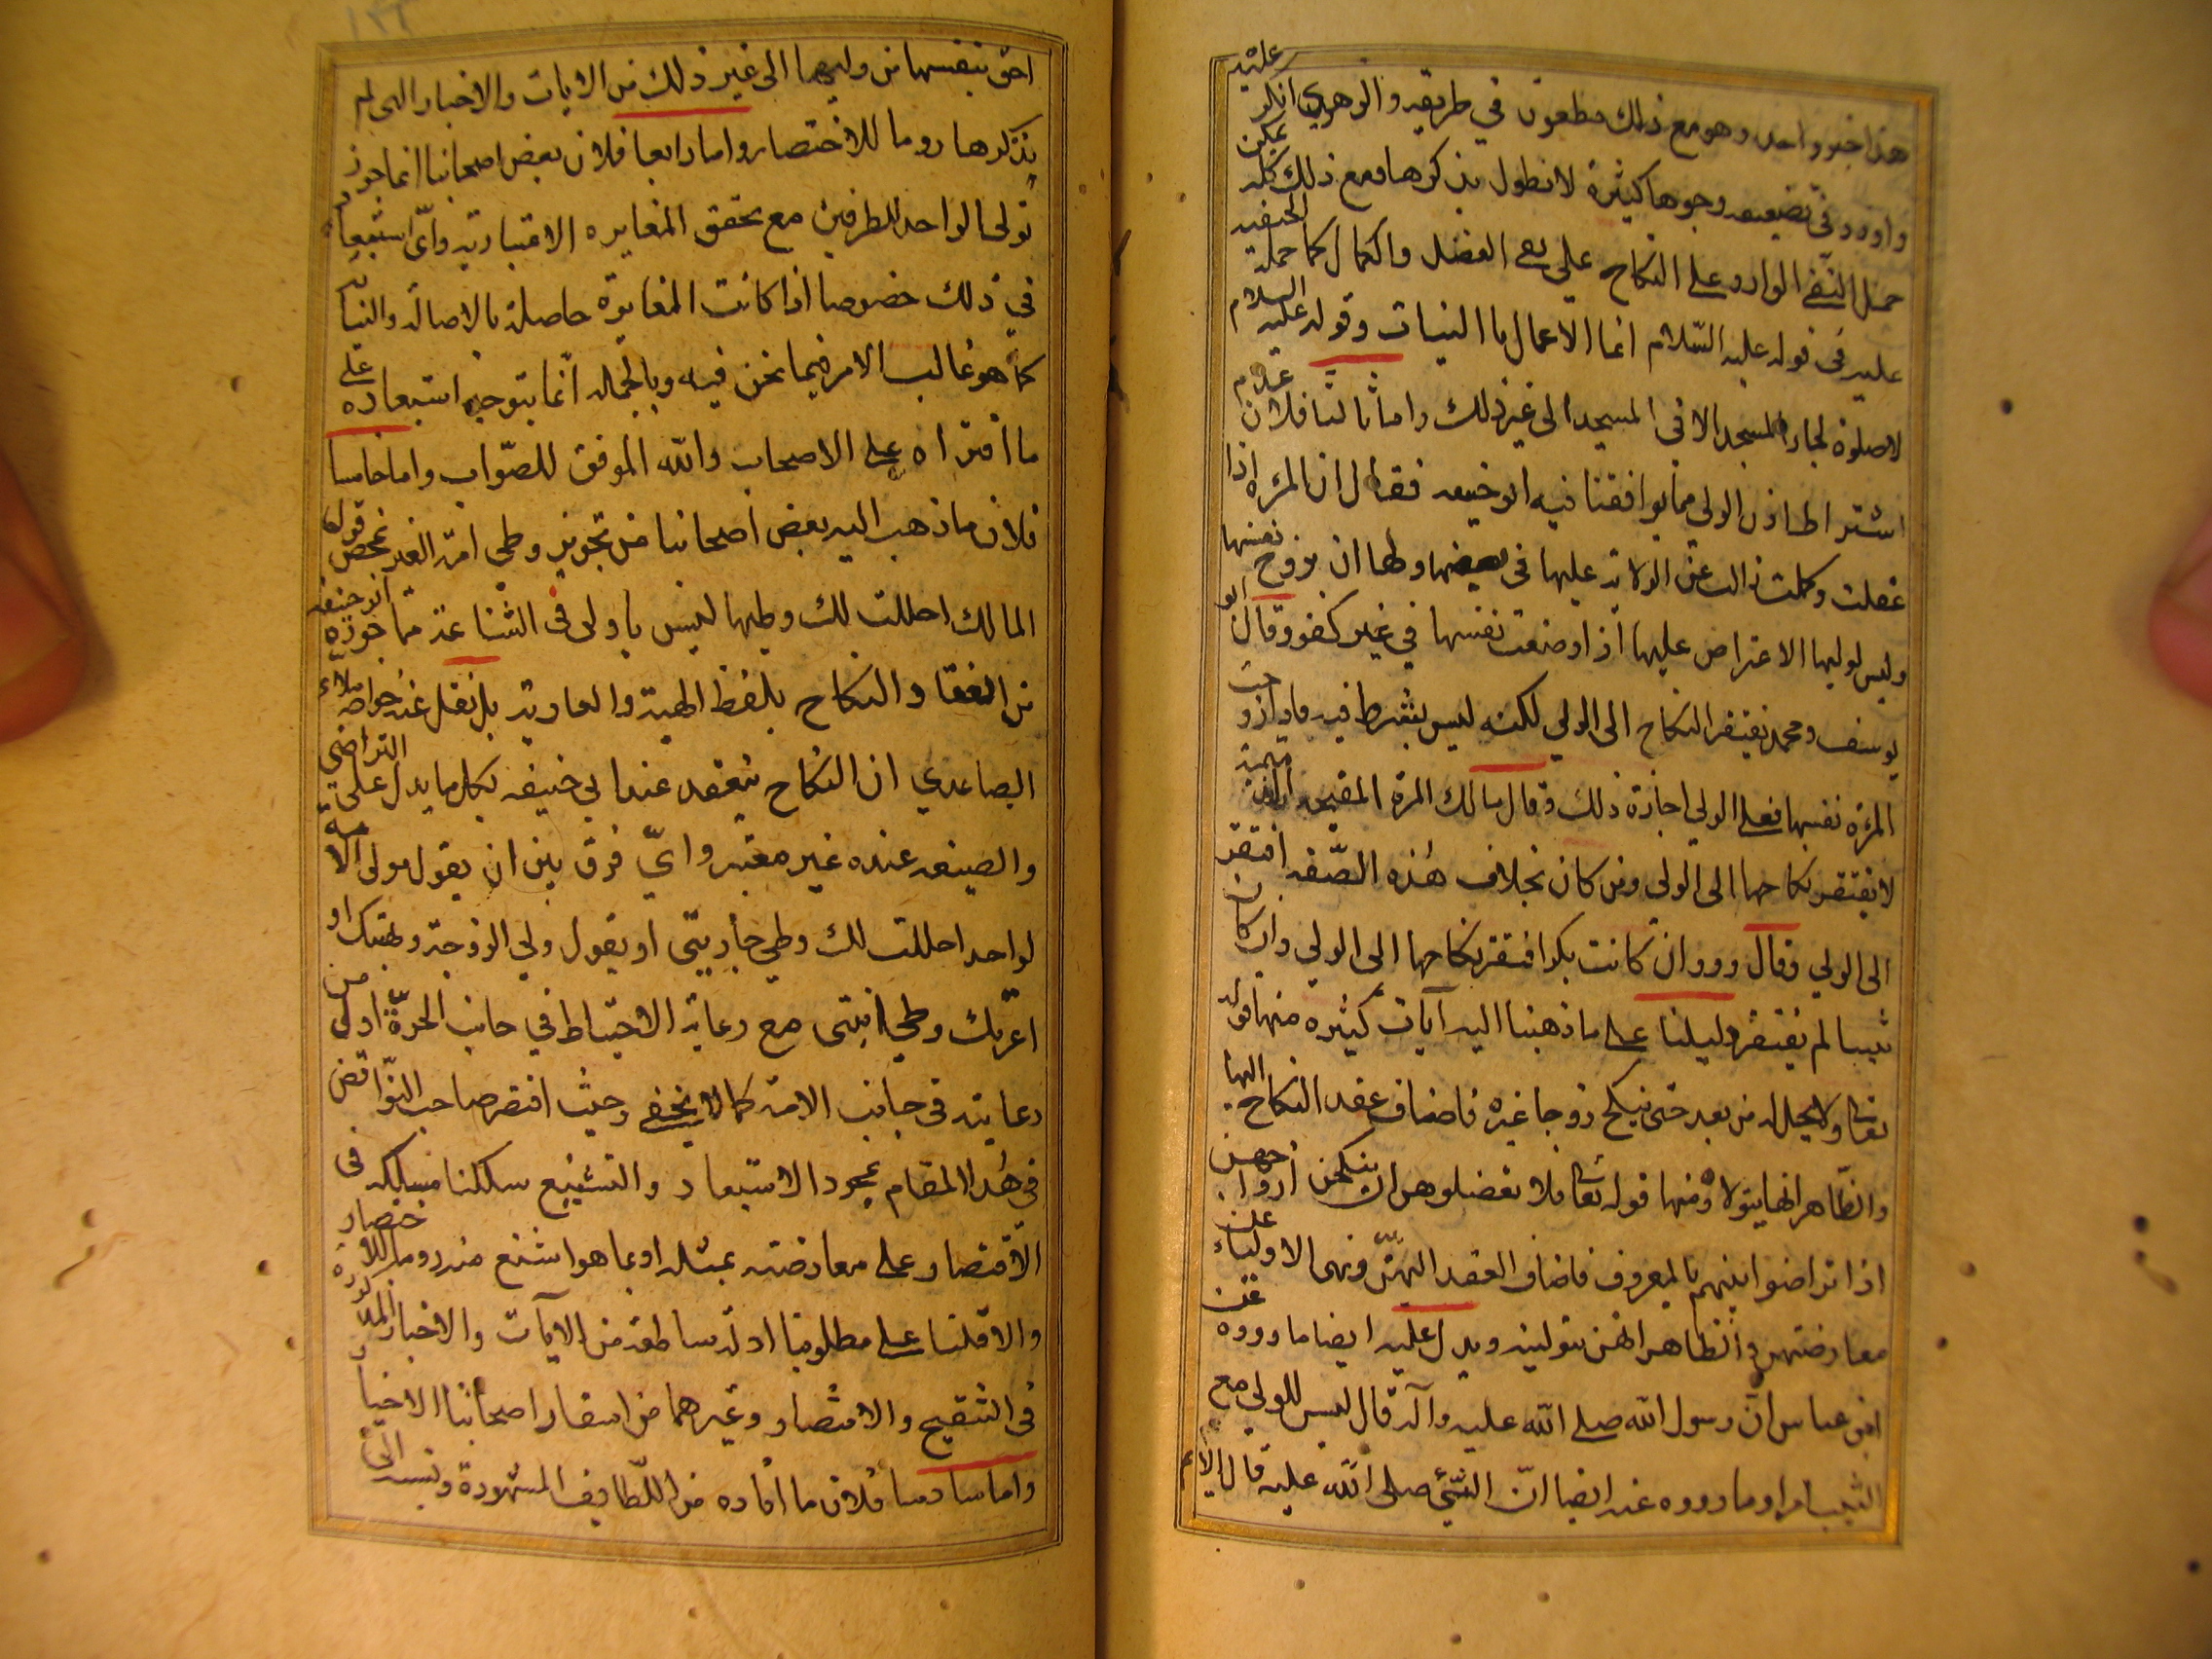 هذا خبر واحد وهو مع ذلك مطعون في طريقه والزهري انكر عليه
واورد في تضعيفه وجوها كثيرة لا نطول بذكرها ومع ذلك كله يمكن
حمل النفي الوارد على النكاح على نفي الفضل والكمال كما حمله الحنفيه
عليه في قوله عليه السّلام انما الاعمال با النيات وقوله عليه السلام
لاصلوة لجار المسجد الا في المسجد الى غير ذلك واما ثالثا فلان عدم
اشتراط اذن الولي مما يوافقنا فيه ابو حنيفه فقال ان المرءه اذا
عقلت وكملت زالت عن الولاية عليها في بضعها ولها ان تزوج نفسها
وليس لوليها الاعتراض عليها اذا وضعت نفسها في غير كفو وقال ابو
يوسف ومحمد يفتقر النكاح الى الولي لكنه ليس بشرط فيه فاذا زوجت
المرءة نفسها فعلى الولي اجازة ذلك وقال مالك المرءة المقبحه الذميمة
لا يفتقر نكاحها الى الولي ومن كان بخلاف هذه الصّفه افتقر
الى الولي وقال داود ان كانت بكرا افتقر نكاحها الى الولي وان كان
ثيبا لم يفتقر دليلنا على ما ذهبنا اليه آيات كثيره منها قوله
تعالى ولا يحل له من بعد حتى تنكح زوجا غيره فاضاف عقد النكاح اليها
والظّاهر انها يتولاه ومنها قوله تعالى فلا تعضلوهن ان ينكحن ازواجهن
اذا تراضوا بينهم بالمعروف فاضاف العقد اليهنّ ونهى الاولياء عن
معارضتهن والظاهر انهن يتولينه ويدل عليه ايضا ما رووه عن
ابن عباس انّ رسول الله صلى الله عليه وآله قال ليس للولي مع
الثيب امر وما رووه عنه ايضا انّ النّبي صلى الله عليه قال الايم
احق بنفسها من وليها الى غير ذلك من الايات والاخبار التى لم
يذكرها روما للاختصار واما رابعا فلان بعض اصحابنا انما جوز
تولى الواحد للطرفين مع تحقق المغايره الاعتباريه وايّ استبعاد
في ذلك خصوصا اذا كانت المغايرة حاصلة بالاصالة والنيابة
كما هو غالب الامر فيما نحن فيه وبالجمله انّما يتوجه استبعاده على
ما افتراه على الاصحاب والله الموفق للصّواب واما خامسا
فلان ما ذهب اليه بعض اصحابنا من تجويز وطي امة الغير بمحض قول
المالك احللت لك وطيها ليس باولى في الشناعة مما جوزه ابو حنيفه
من انعقاد النكاح بلفظ الهبة والعارية بل نقل عنه خواجه ملاء
الصاعدي ان النكاح ينعقد عند ابي حنيفه بكل ما يدل على التراضي
والصيغه عنده غير معتبر وايّ فرق بين ان يقول مولى الامة
لواحد احللت لك وطي جاريتي او يقول ولي الزوجة وهبتك او
اعرتك وطي ابنتى مع رعاية الاحتياط في جانب الحرّة اولى من
رعايته في جانب الامة كما لا يخفى وحيث اقتصر صاحب النّواقض
في هذا المقام بمجرد الاستبعاد والتشنيع سلكنا مسلكه في
الاقتصار على معارضته بمثله او بما هو اشنع منه روما للاختصار
والا فلنا على مطلوبنا ادلة ساطعة من الآيات والاخبار المذكورة
في التنقيح والانتصار وغيرهما من اسفار اصحابنا الاخيار
واما سادسا فلان ما افاده من اللّطايف المشهورة ونسبه الى